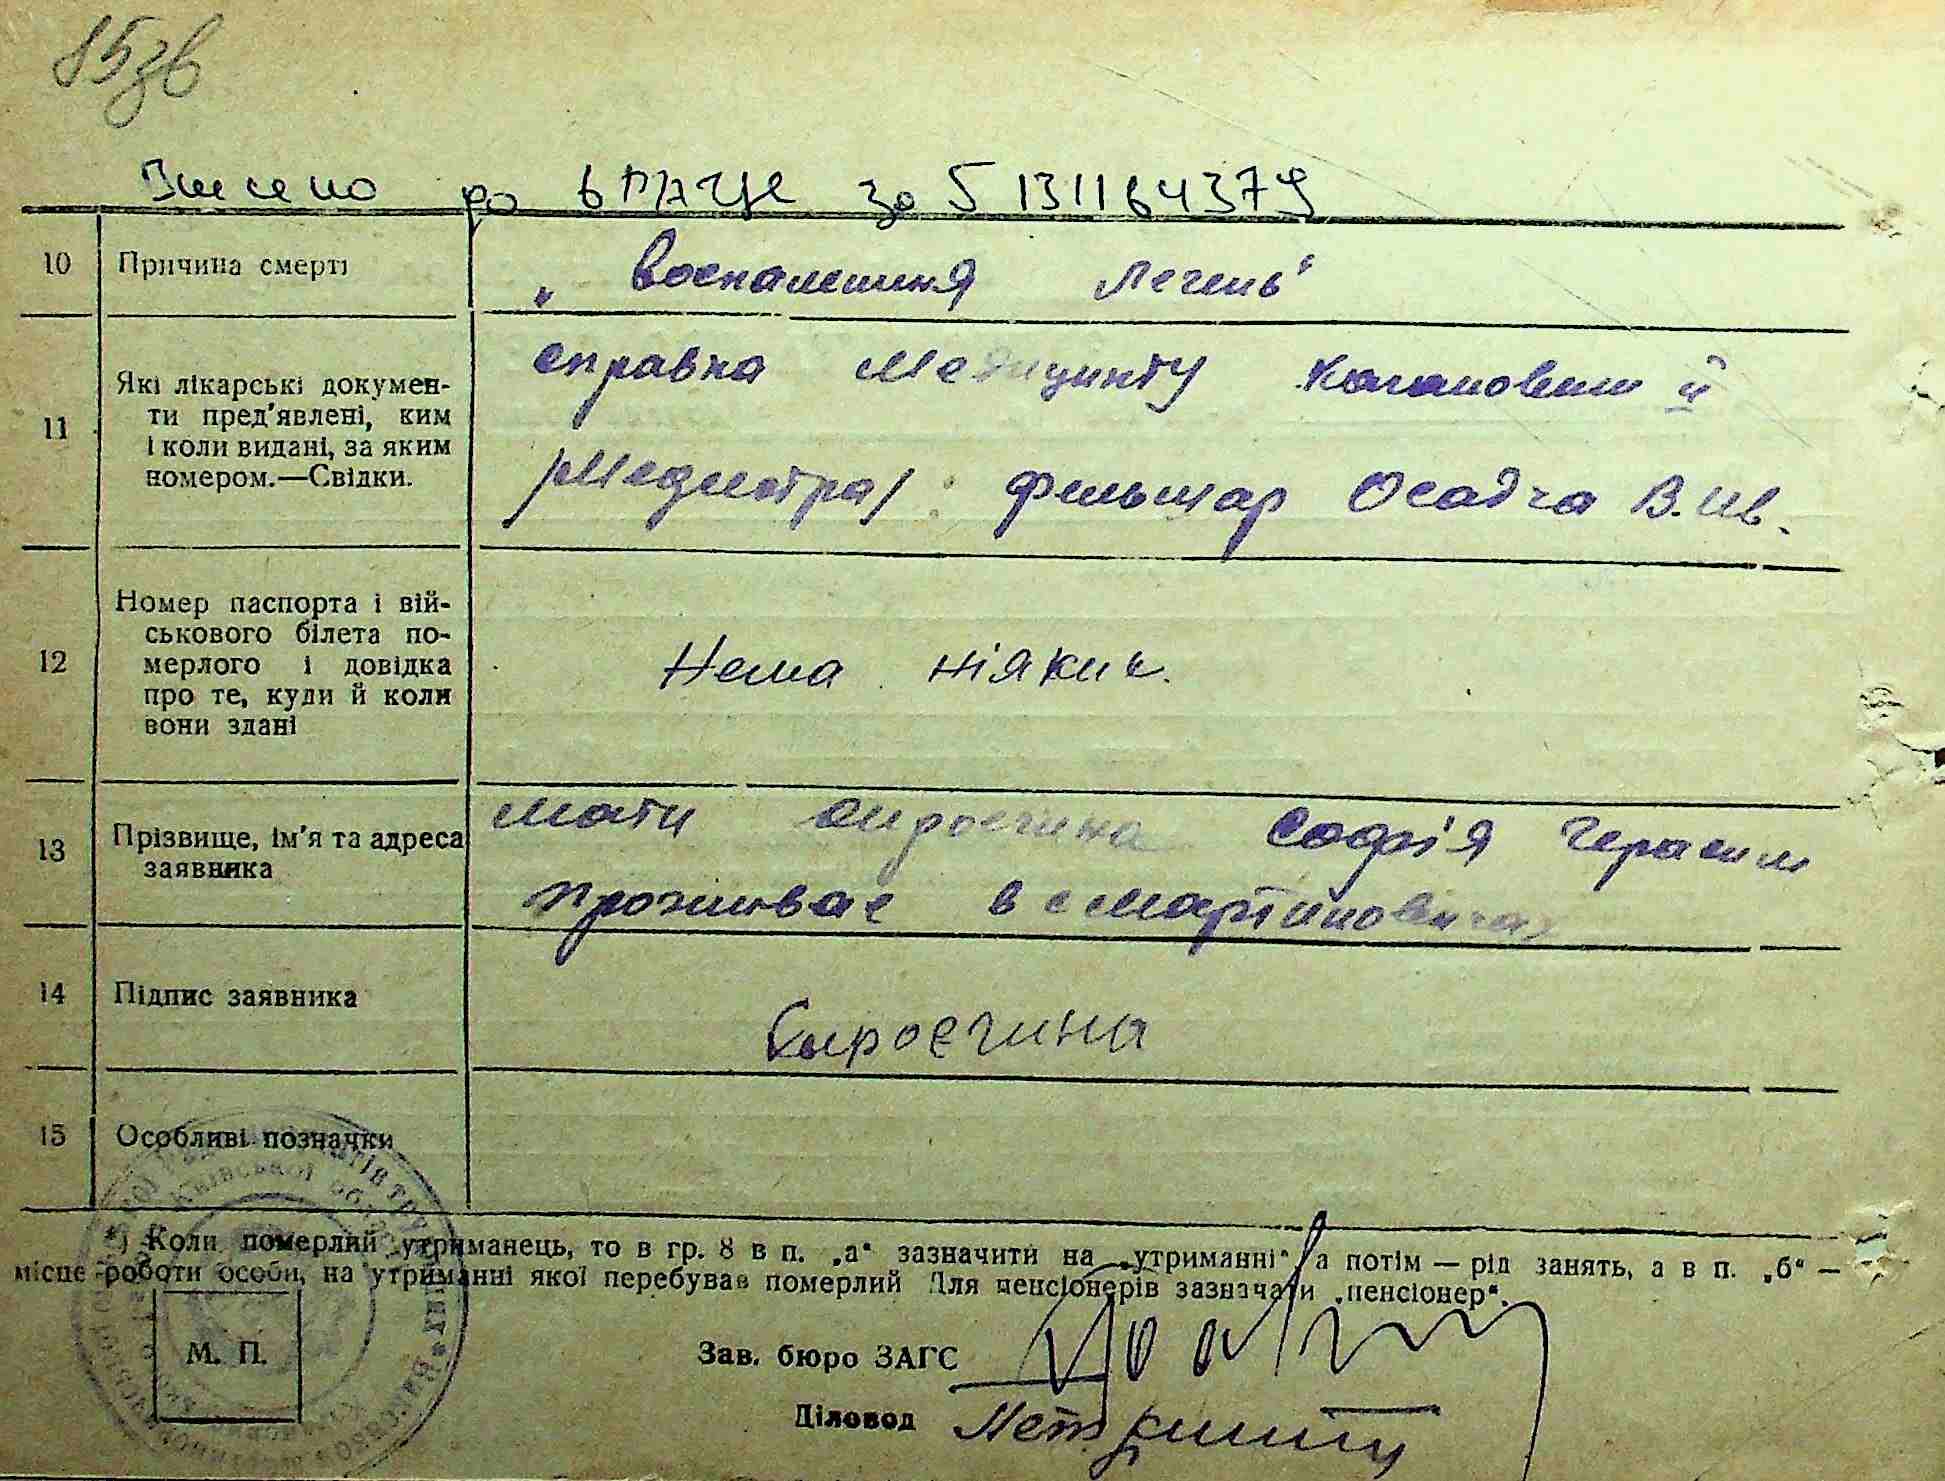 85зв
Внесено до ДРАЦС за § 131164379
10 Причина смерті „Воспалешння лечень“
11 Які лікарські докумен-
ти пред'явлені, ким
і коли видані, за яким
номером.—Свідки.
справка Медицинту Каганович II
/Медсестра/ Фельшар Осадча В. Ив.
12 Номер паспорта і вій-
ськового білета по-
мерлого і довідка
про те, куди й коли
вони здані
Нема ніяких.
13 Прізвище, ім'я та адреса
заявника
мати Сироєчина Софія Герасим
проживає в с Мартиновичах
14 Підпис заявника Сыроечина
15 Особливі позначки
*) Коли померлий утриманець, то в гр. 8 в п. „а“ зазначити на „утриманні“, а потім — рід занять, а в п. „б“ —
місце роботи особи, на утриманні якої перебував померлий Для пенсіонерів зазначати „пенсіонер“.
М. П.
Зав. бюро ЗАГС
Діловод